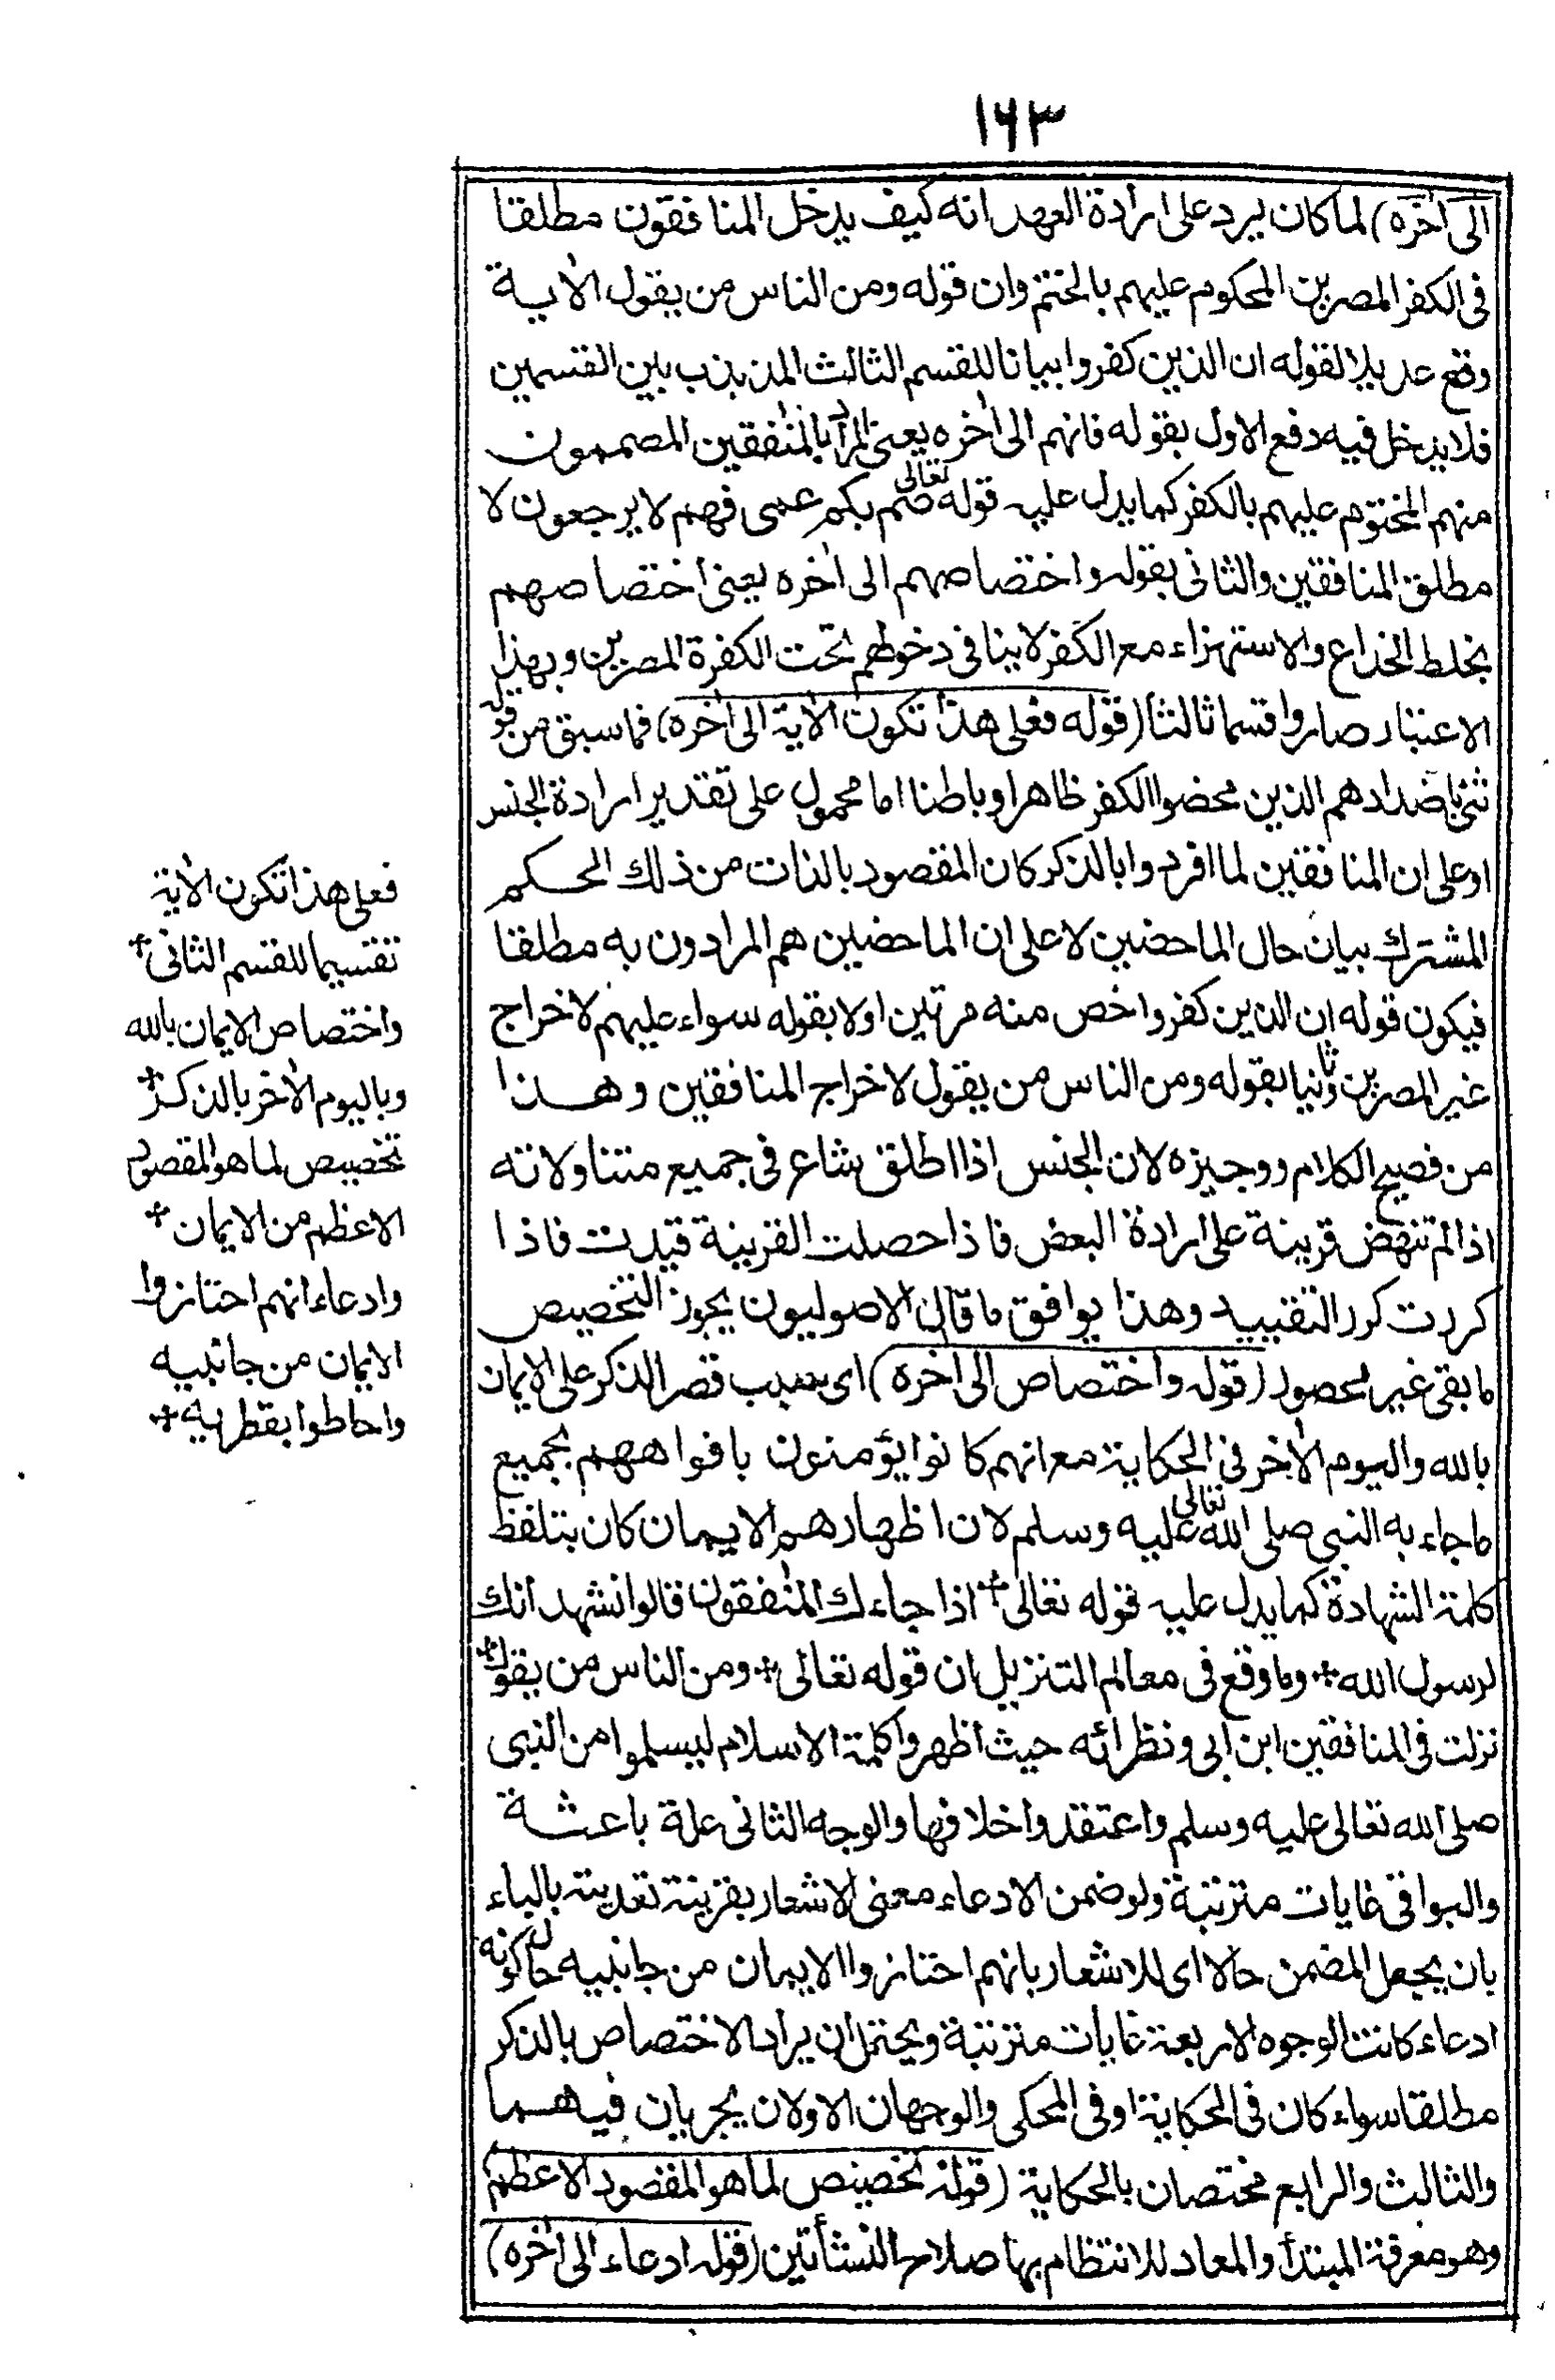 ١٦٣
الى اخره) لما كان يرد على ارادة العهد انه كيف يدخل المنافقون مطلقا
فى الكفر المصرين المحكوم عليهم بالختم وان قوله ومن الناس من يقول الآية
وقع عديلا لقوله ان الذين كفروا بيانا للقسم الثالث المذبذب بين القسمين
فلا يدخل فيه دفع الاول بقوله فانهم الى اخره يعنى المراد بالمنٰفقين المصممون
منهم المختوم عليهم بالكفر كما يدل عليه قوله تعالى صم بكم عمى فهم لا يرجعون لا
مطلق المنافقين والثانى بقوله واختصاصهم الى اخره يعنى اختصاصهم
بخلط الخداع والاستهزاء مع الكفر لا ينافى دخولهم تحت الكفرة المصرين وبهذا
الاعتبار صاروا قسما ثالثا (قوله فعلى هذا تكون الآية الى اخره) فما سبق من قوله
ثنى باضدادهم الذين محضوا الكفر ظاهرا وباطنا اما محمول على تقدير ارادة الجنس
او على ان المنافقين لما افردوا بالذكر كان المقصود بالذات من ذلك الحكم
المشترك بيان حال الماحضين لا على ان الماحضين هم المرادون به مطلقا
فيكون قوله ان الذين كفروا خص منه مرتين اولا بقوله سواء عليهم لاخراج
غير المصرين وثانيا بقوله ومن الناس من يقول لاخراج المنافقين وهذا
من فصيح الكلام ووجيزه لان الجنس اذا اطلق شاع فى جميع متناولاته
اذا لم تنهض قرينة على ارادة البعض فاذا حصلت القرينة قيدت فاذا
كررت كرر التقييد وهذا يوافق ما قال الاصوليون يجوز التخصيص
ما بقى غير محصور (قوله واختصاص الى اخره) اى سبب قصر الذكر على الايمان
بالله واليوم الآخر فى الحكاية مع انهم كانوا يؤمنون بافواههم بجميع
ما جاء به النبى صلى الله تعالى عليه وسلم لان اظهارهم الايمان كان بتلفظ
كلمة الشهادة كما يدل عليه قوله تعالى٭ اذا جاءك المنٰفقون قالوا نشهد انك
لرسول الله٭ وما وقع فى معالم التنزيل ان قوله تعالى٭ ومن الناس من يقول٭
نزلت فى المنافقين ابن ابى ونظرائه حيث اظهروا كلمة الاسلام ليسلموا من النبى
صلى الله تعالى عليه وسلم واعتقدوا خلافها والوجه الثانى علة باعثة
والبواقى غايات مترتبة ولو ضمن الادعاء معنى الاشعار بقرينة تعديته بالباء
بان يجعل المضمن حالا اى للاشعار بانهم احتازوا الايمان من جانبيه حال كونه
ادعاء كانت الوجوه الاربعة غايات مترتبة ويحتمل ان يراد الاختصاص بالذكر
مطلقا سواء كان فى الحكاية او فى المحكى والوجهان الاولان يجريان فيهما
والثالث والرابع مختصان بالحكاية (قوله تخصيص لما هو المقصود الاعظم)
وهو معرفة المبتدأ والمعاد للانتظام بها صلاح النشأتين (قوله ادعاء الى اخره)
فعلى هذا تكون الآية
تقسيما للقسم الثانى٭
واختصاص الايمان بالله
وباليوم الآخر بالذكر٭
تخصيص لما هو المقصود
الاعظم من الايمان٭
وادعاء انهم احتازوا
الايمان من جانبيه
واحاطوا بقطريه٭